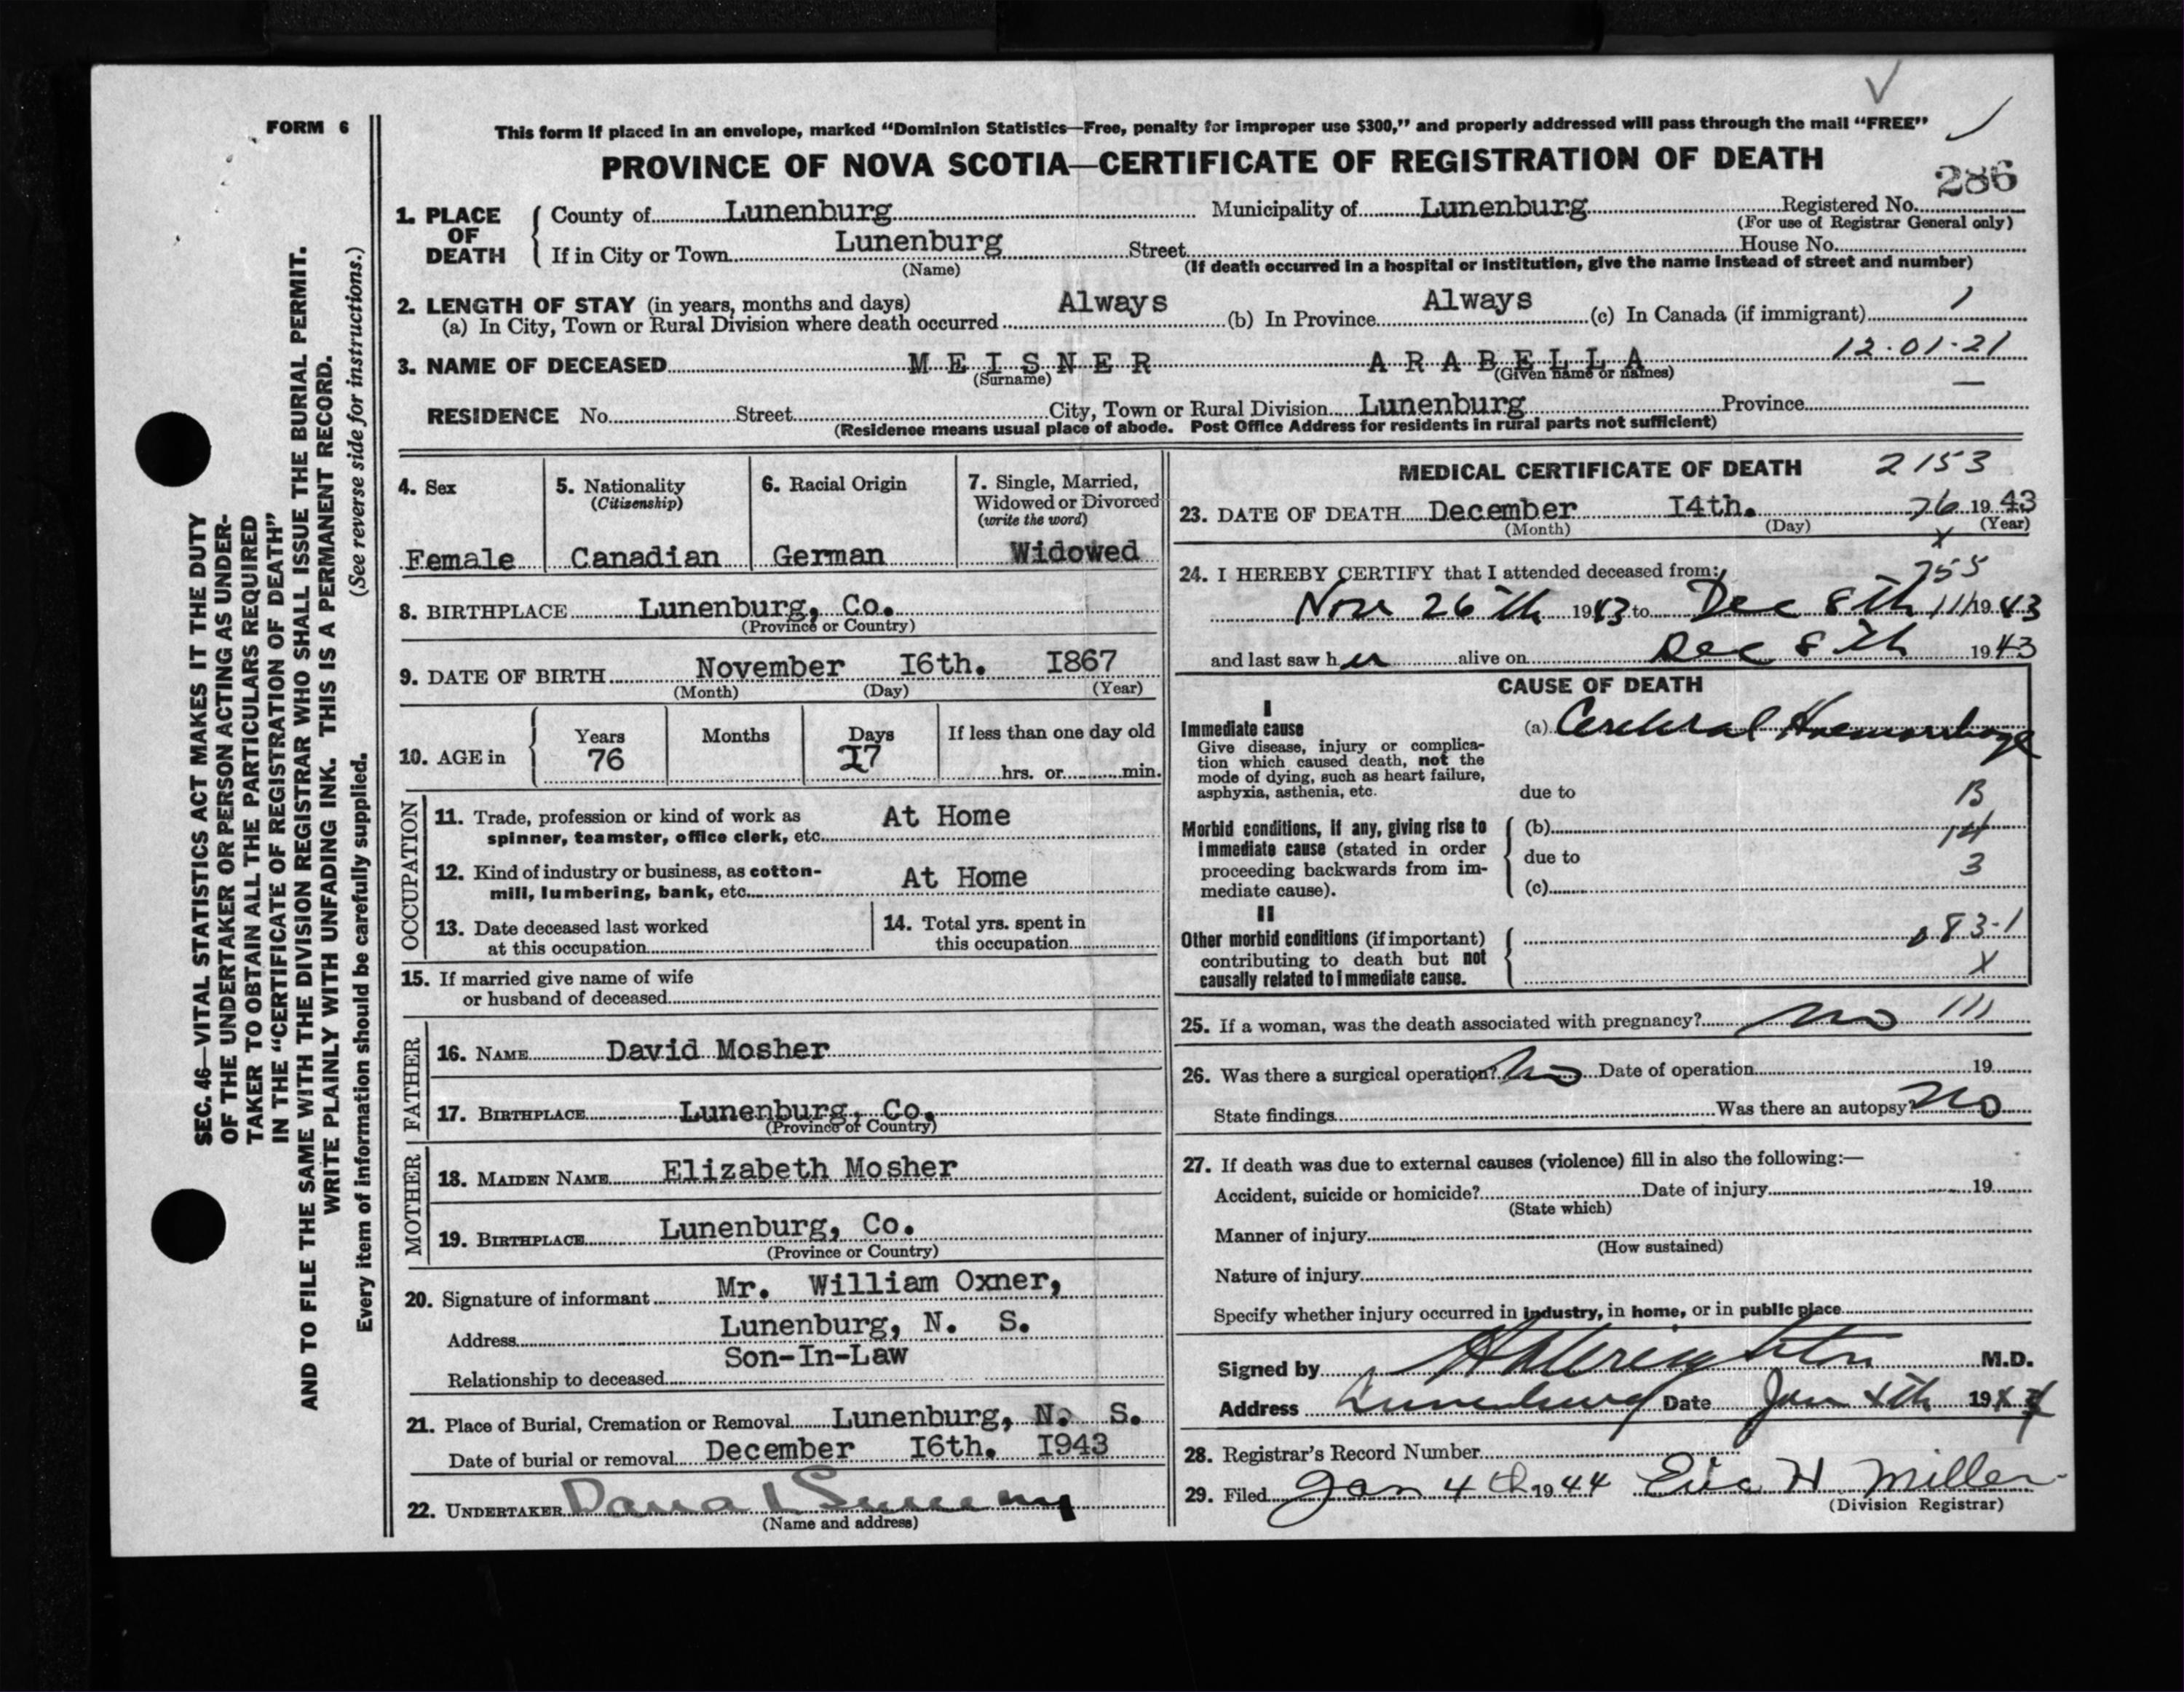 FORM 6
SEC. 46—VITAL STATISTICS ACT MAKES IT THE DUTY
OF THE UNDERTAKER OR PERSON ACTING AS UNDER-
TAKER TO OBTAIN ALL THE PARTICULARS REQUIRED
IN THE "CERTIFICATE OF REGISTRATION OF DEATH"
AND TO FILE THE SAME WITH THE DIVISION REGISTRAR WHO SHALL ISSUE THE BURIAL PERMIT.
WRITE PLAINLY WITH UNFADING INK. THIS IS A PERMANENT RECORD.
Every item of information should be carefully supplied. (See reverse side for instructions.)
This form if placed in an envelope, marked "Dominion Statistics—Free, penalty for improper use $300," and properly addressed will pass through the mail "FREE"
PROVINCE OF NOVA SCOTIA—CERTIFICATE OF REGISTRATION OF DEATH
286
1. PLACE OF DEATH County of Lunenburg Municipality of Lunenburg Registered No.
(For use of Registrar General only)
If in City or Town Lunenburg Street House No.
(Name) (If death occurred in a hospital or institution, give the name instead of street and number)
2. LENGTH OF STAY (in years, months and days)
(a) In City, Town or Rural Division where death occurred Always (b) In Province Always (c) In Canada (if immigrant) 1
3. NAME OF DECEASED MEISNER ARABELLA 12.01.21
(Surname) (Given name or names)
RESIDENCE No. Street City, Town or Rural Division Lunenburg Province
(Residence means usual place of abode. Post Office Address for residents in rural parts not sufficient)
4. Sex
Female
5. Nationality
(Citizenship)
Canadian
6. Racial Origin
German
7. Single, Married,
Widowed or Divorced
(write the word)
Widowed
8. BIRTHPLACE Lunenburg, Co.
(Province or Country)
9. DATE OF BIRTH November I6th. I867
(Month) (Day) (Year)
10. AGE in Years Months Days If less than one day old
76 27 hrs. or min.
OCCUPATION
11. Trade, profession or kind of work as
spinner, teamster, office clerk, etc. At Home
12. Kind of industry or business, as cotton-
mill, lumbering, bank, etc. At Home
13. Date deceased last worked
at this occupation
14. Total yrs. spent in
this occupation
15. If married give name of wife
or husband of deceased
FATHER
16. NAME David Mosher
17. BIRTHPLACE Lunenburg, Co.
(Province or Country)
MOTHER
18. MAIDEN NAME Elizabeth Mosher
19. BIRTHPLACE Lunenburg, Co.
(Province or Country)
20. Signature of informant Mr. William Oxner,
Address Lunenburg, N. S.
Relationship to deceased Son-In-Law
21. Place of Burial, Cremation or Removal Lunenburg, N. S.
Date of burial or removal December I6th. I943
22. UNDERTAKER
(Name and address)
MEDICAL CERTIFICATE OF DEATH 2153
23. DATE OF DEATH December I4th. 76 1943
(Month) (Day) (Year)
x
24. I HEREBY CERTIFY that I attended deceased from: 755
Nov 26th 1943 to Dec 8th 11/1943
and last saw her alive on Dec 8th 1943
CAUSE OF DEATH
I
Immediate cause (a) Cerebral Haemorrhage
Give disease, injury or complica-
tion which caused death, not the
mode of dying, such as heart failure,
asphyxia, asthenia, etc. due to B
Morbid conditions, if any, giving rise to (b) 14
immediate cause (stated in order due to
proceeding backwards from im- 3
mediate cause). (c)
II
Other morbid conditions (if important) 83-1
contributing to death but not
causally related to immediate cause. X
25. If a woman, was the death associated with pregnancy? no 111
26. Was there a surgical operation? No Date of operation 19
State findings Was there an autopsy? No
27. If death was due to external causes (violence) fill in also the following:—
Accident, suicide or homicide? Date of injury 19
(State which)
Manner of injury
(How sustained)
Nature of injury
Specify whether injury occurred in industry, in home, or in public place
Signed by M.D.
Address Lunenburg Date Jan 4th 1944
28. Registrar's Record Number
29. Filed Jan 4th 1944 Eric H. Miller
(Division Registrar)